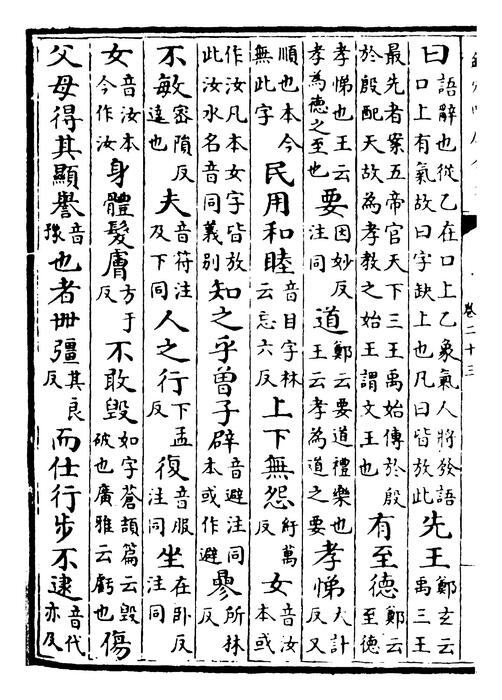 曰語辭也從乙在口上乙象氣人將發語口上有氣故曰字缺上也凡曰皆放此先王鄭玄云禹三王
最先者案五帝官天下三王禹始傳於殷於殷配天故為孝教之始王謂文王也有至德鄭云至德
孝悌也王云孝為德之至也要因妙反注同道鄭云要道禮樂也王云孝為道之要孝悌大計反又
順也本今無此字民用和睦音目字林云忘六反上下無怨紆萬反女音汝本或
作汝凡本女字皆放此汝水名音同義別知之乎曾子辟音避注同本或作避參所林反
不敏密隕反達也夫音符注及下同人之行下孟反復音服注同坐在卧反注同
女音汝本今作汝身體髮膚方于反不敢毀如字蒼頡篇云毀破也廣雅云虧也傷
父母得其顯譽音豫也者丗彊其良反而仕行步不逮音代亦及
卷二十三